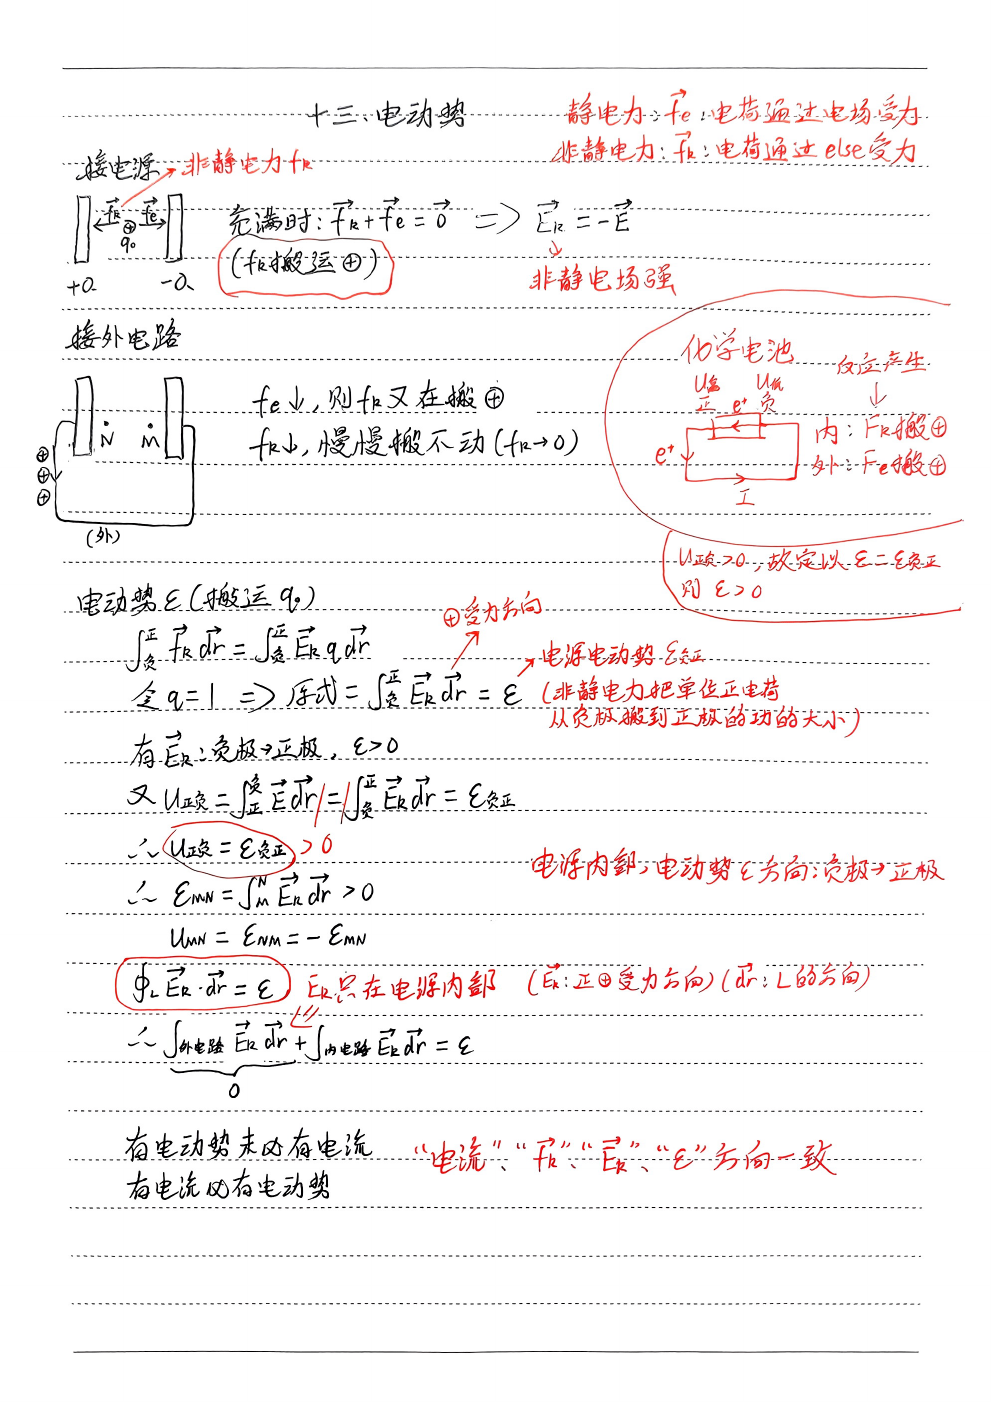 十三、电动势
静电力:f⃗e:电荷通过电场受力
非静电力:f⃗k:电荷通过else受力
接电源 → 非静电力fk
f⃗k f⃗e
⊕
q₀
+Q -Q
充满时:f⃗k+f⃗e=0⃗ => E⃗k=-E⃗
(fk搬运⊕)
非静电场强
接外电路
N M
⊕
⊕
⊕
(外)
fe↓,则fk又在搬⊕
fk↓,慢慢搬不动(fk→0)
化学电池
反应产生
U高 U低
正 e⁺ 负
e⁺
I
内:Fk搬⊕
外:Fe搬⊕
U正负>0,故定以ε=ε负正
则 ε>0
电动势ε(搬运q₀)
⊕受力方向
∫负正 f⃗k dr⃗=∫负正 E⃗k q dr⃗
令q=1 => 原式=∫负正 E⃗k dr⃗=ε
电源电动势ε负正
(非静电力把单位正电荷
从负极搬到正极的功的大小)
有E⃗k:负极→正极,ε>0
又U正负=∫正负 E⃗ dr⃗=∫负正 E⃗k dr⃗=ε负正
∴ U正负=ε负正>0
电源内部,电动势ε方向:负极→正极
∴ εMN=∫MN E⃗k dr⃗>0
UMN=εNM=-εMN
∮L E⃗k·dr⃗=ε Ek只在电源内部 (E⃗k:正⊕受力方向)(dr⃗:L的方向)
∴ ∫外电路 E⃗k dr⃗+∫内电路 E⃗k dr⃗=ε
0
有电动势未必有电流
有电流必有电动势
“电流”、“f⃗k”、“E⃗k”、“ε”方向一致